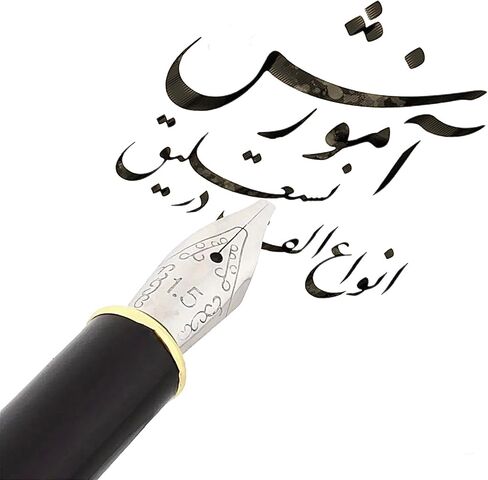 آموزش
نستعلیق
انواع الف در
1.5